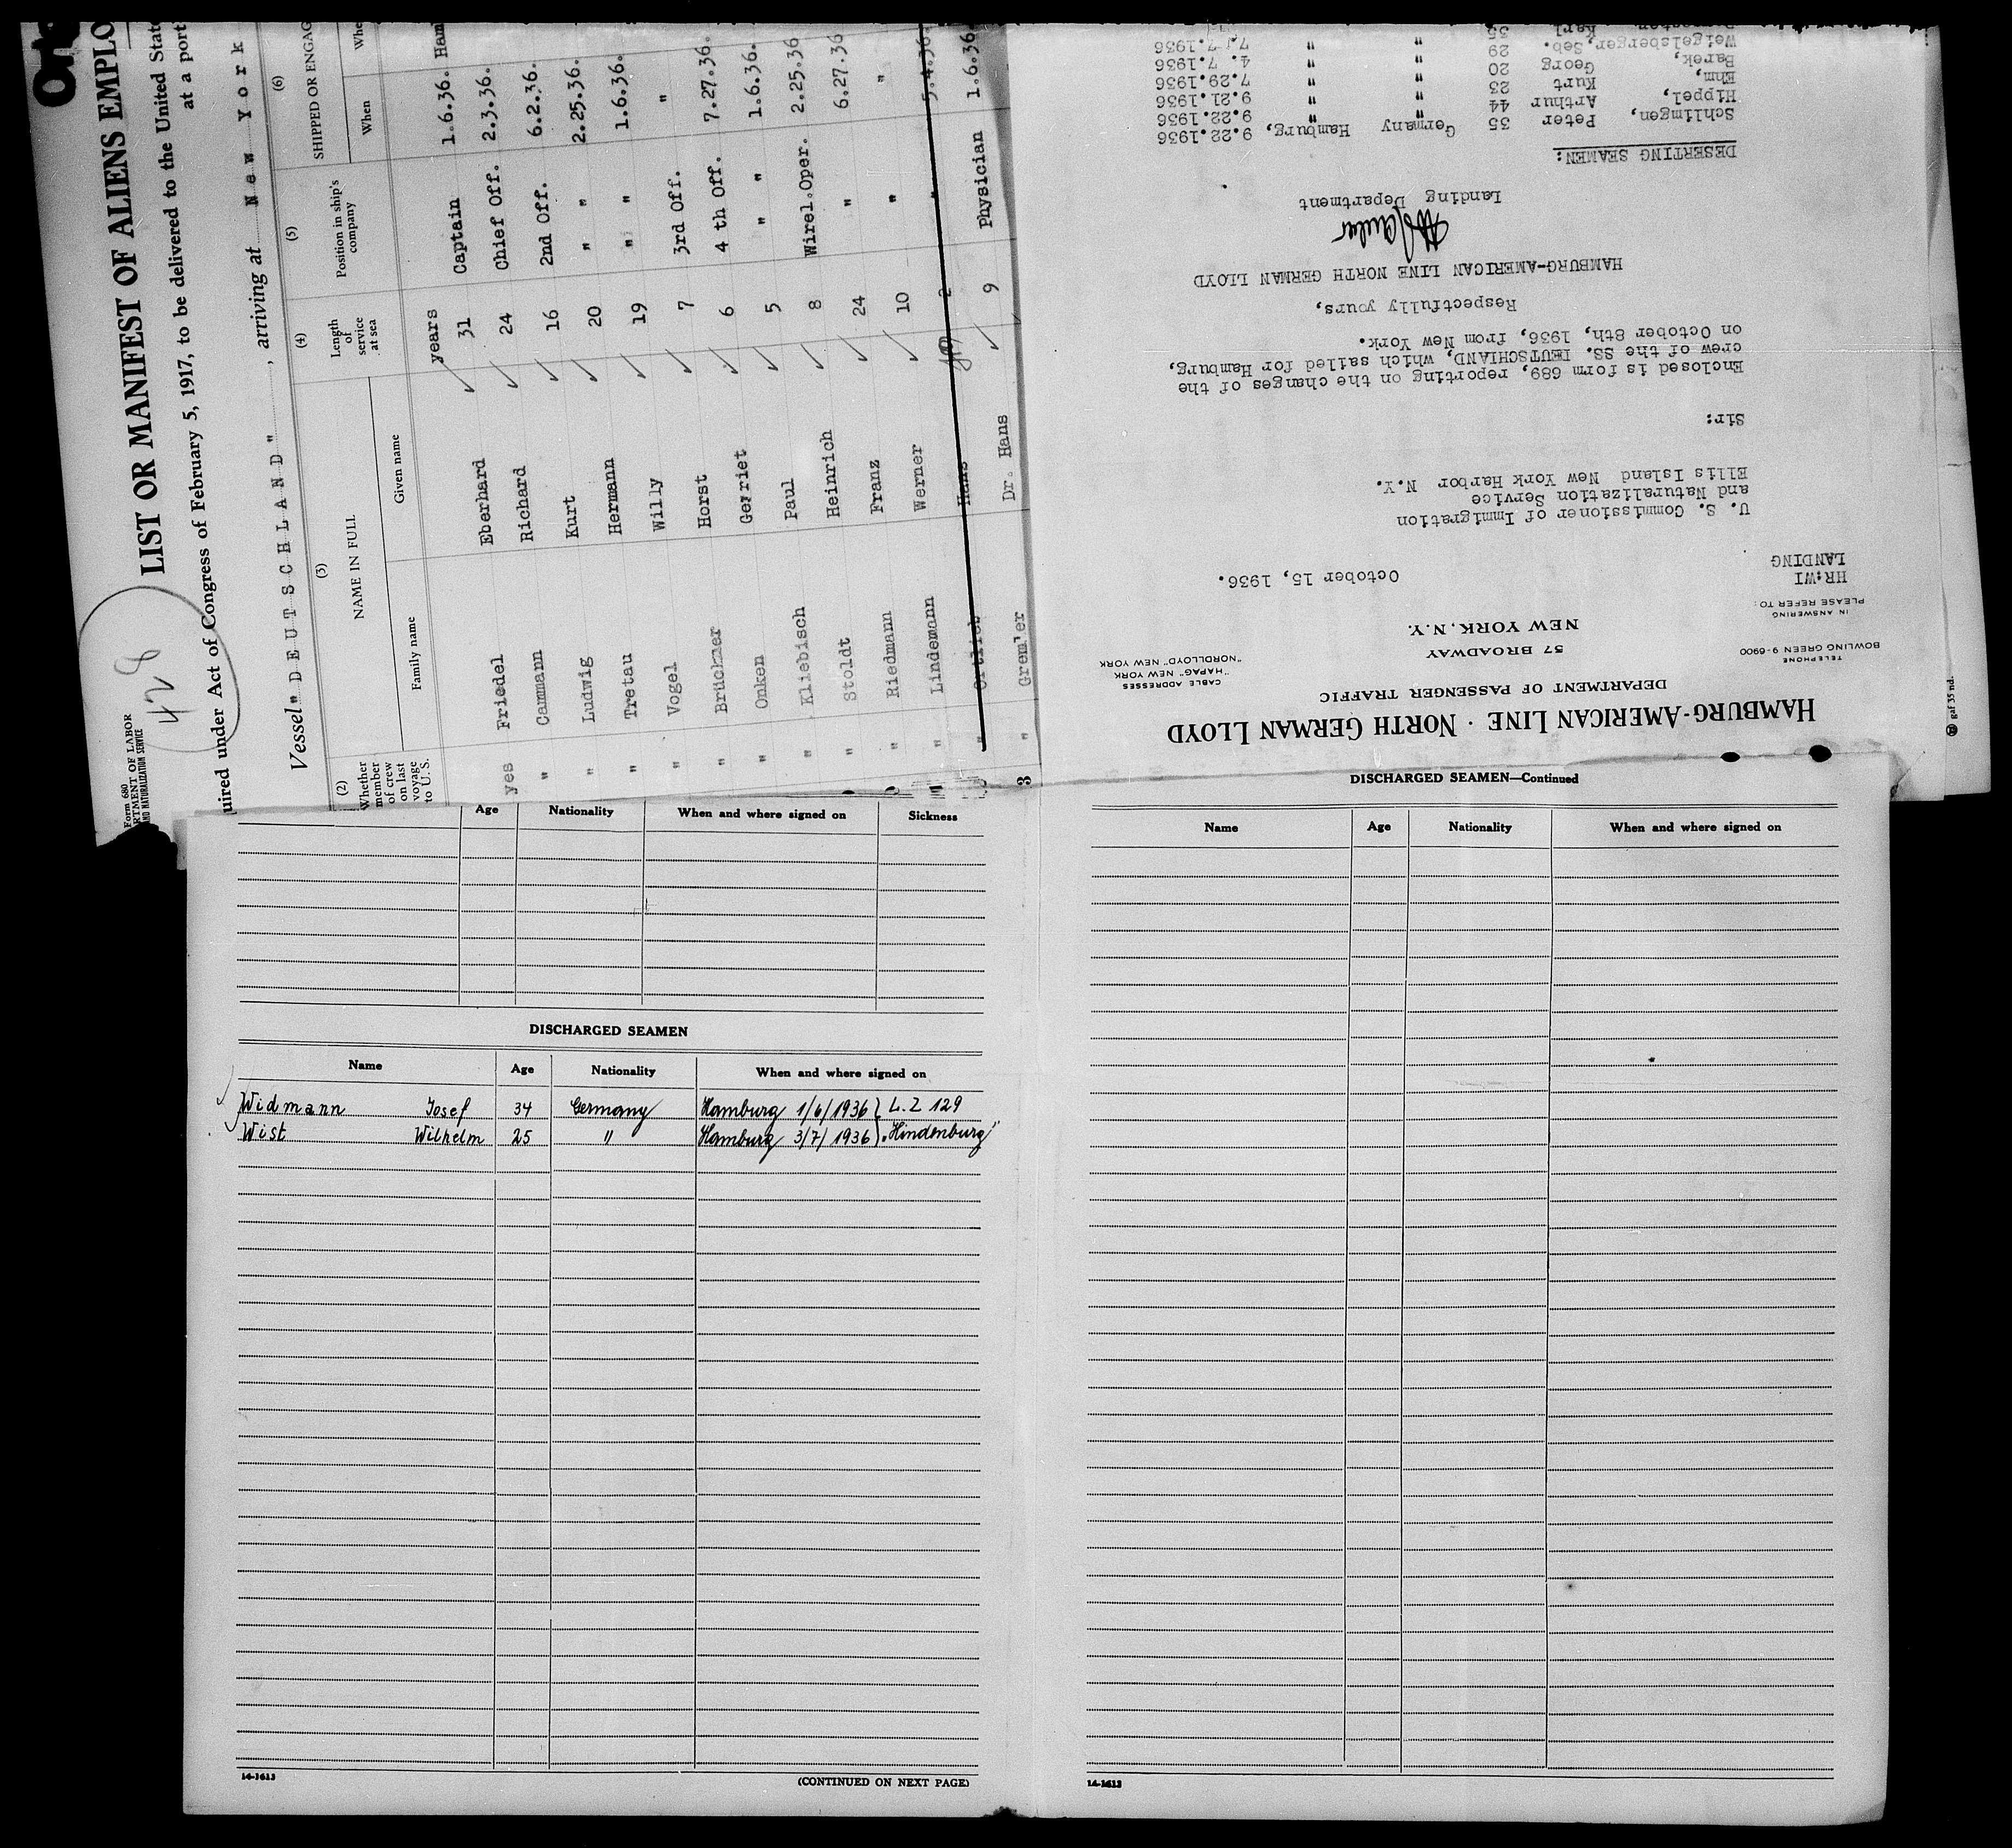 Form 680
LIST OR MANIFEST OF ALIENS EMPLO
uired under Act of Congress of February 5, 1917, to be delivered to the United Stat
at a port
428
Vessel " D E U T S C H L A N D " , arriving at N e w Y o r k
(2) (3) (4) (5) (6)
Whether member of crew on last voyage to U. S. NAME IN FULL Length of service at sea Position in ship's company SHIPPED OR ENGAG
Family name Given name When
years
yes Friedel Eberhard 31 Captain 1.6.36. Ham
" Cammann Richard 24 Chief Off. 2.3.36.
" Ludwig Kurt 16 2nd Off. 6.2.36.
" Tretau Hermann 20 " " 2.25.36.
" Vogel Willy 19 " " 1.6.36.
" Brückner Horst 7 3rd Off. "
" Onken Gerriet 6 4 th Off. 7.27.36.
" Kliebisch Paul 5 " " 1.6.36.
" Stoldt Heinrich 8 Wirel.Oper. 2.25.36
" Riedmann Franz 24 " 6.27.36
" Lindemann Werner 10 " "
" Ortlieb Hans 2 " 5.4.36.
3 " Gremler Dr. Hans 9 Physician 1.6.36.
HAMBURG-AMERICAN LINE · NORTH GERMAN LLOYD
DEPARTMENT OF PASSENGER TRAFFIC
57 BROADWAY
NEW YORK, N.Y.
TELEPHONE
BOWLING GREEN 9-6900
CABLE ADDRESSES
"HAPAG" NEW YORK
"NORDLLOYD" NEW YORK
IN ANSWERING
PLEASE REFER TO:
HR:WI
LANDING
October 15, 1936.
U. S. Commissioner of Immigration
and Naturalization Service
Ellis Island New York Harbor N.Y.
Sir:
Enclosed is form 689, reporting on the changes of the
crew of the SS. DEUTSCHLAND, which sailed for Hamburg,
on October 8th, 1936, from New York.
Respectfully yours,
HAMBURG-AMERICAN LINE NORTH GERMAN LLOYD
Landing Department
DESERTING SEAMEN:
Schlimgen, Peter 35 Germany Hamburg, 9.22.1936
Hippel, Arthur 44 " " 9.22.1936
Ehm, Kurt 23 " " 9.21.1936
Barek, Georg 20 " " 7.29.1936
Weigelsberger, Seb. 29 " " 4. 7.1936
Karl 35 " " 7. 7.1936
Age Nationality When and where signed on Sickness
DISCHARGED SEAMEN
Name Age Nationality When and where signed on
Widmann Josef 34 Germany Hamburg 1/6/1936 } L.Z 129
Wist Wilhelm 25 " Hamburg 3/7/1936 } "Hindenburg"
14-1613 (CONTINUED ON NEXT PAGE)
DISCHARGED SEAMEN—Continued
Name Age Nationality When and where signed on
14-1613